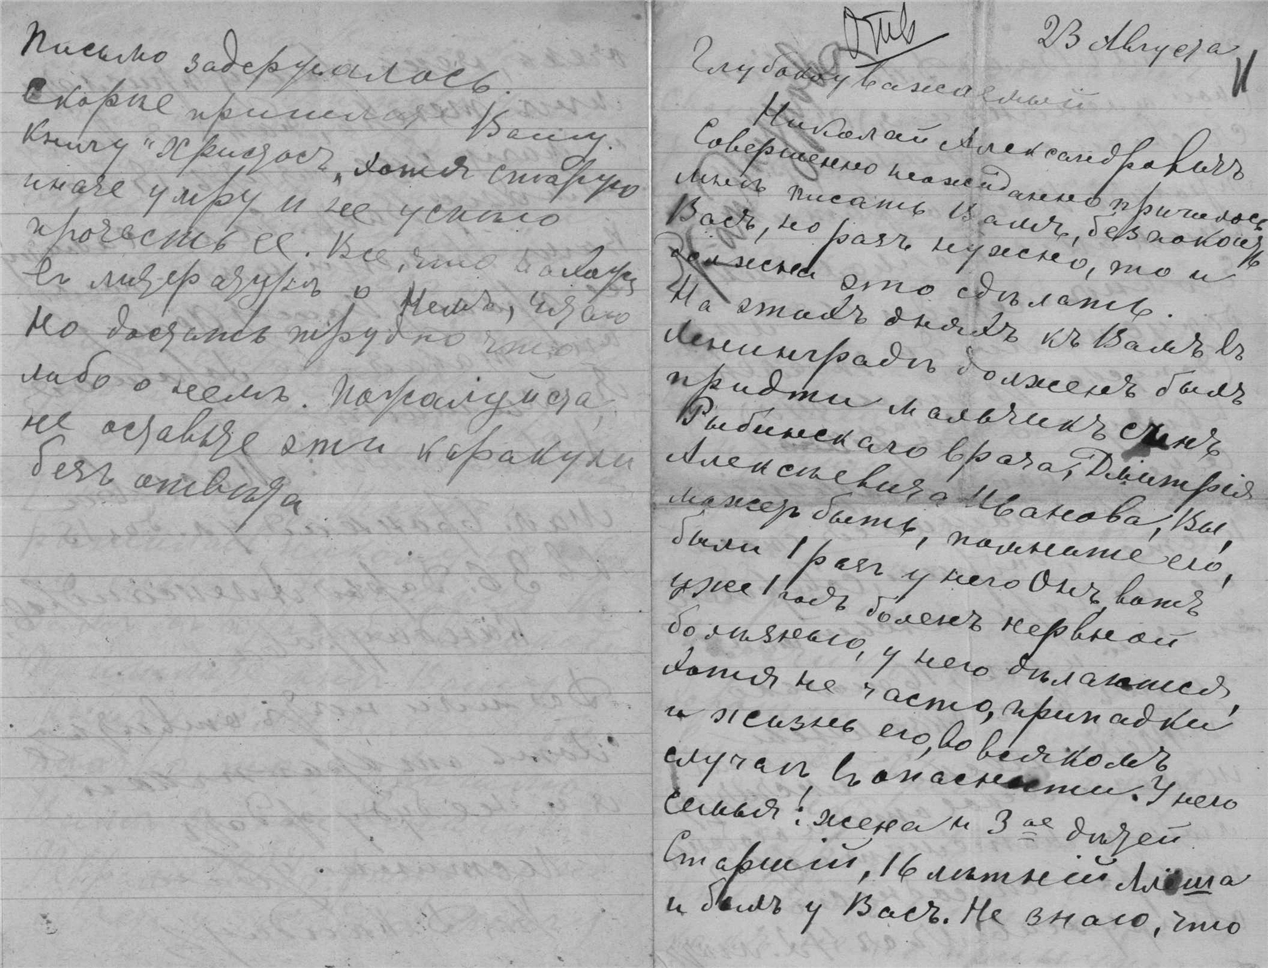 Письмо задержалось.
Скорѣе пришлите Вашу
книгу "Христосъ", хотя старую
иначе умру и не успѣю
прочесть ее. Все, что находи
въ литературѣ о Немъ, читаю
но достать трудно что
либо о немъ. Пожалуйста,
не оставьте эти каракули
безъ отвѣта
Отв
23 Августа
Глубокоуважаемый
Николай Александровичъ
Совершенно неожиданно пришлось
мнѣ писать Вамъ, безпокоить
Васъ, но разъ нужно, то и
должна это сдѣлать.
На этихъ дняхъ къ Вамъ въ
Ленинградъ долженъ былъ
придти мальчикъ сынъ
Рыбинскаго врача, Дмитрія
Алексѣевича Иванова, Вы,
можетъ быть, помните его,
были 1 разъ у него Онъ вотъ
уже 1 годъ боленъ нервной
болѣзнью, у него дѣлаются,
хотя не часто, припадки
и жизнь его, во всякомъ
случаѣ, въ опасности. У него
семья: жена и 3ое дѣтей
Старшій, 16 лѣтній Алёша
и былъ у Васъ. Не знаю, что